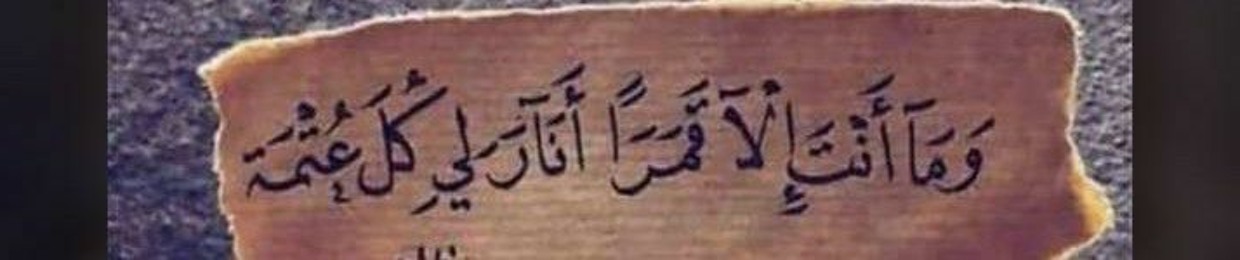 وَمَآ أَنْتَ إِلْآ قَمَرَاً أَنَآرَ لِي كُلَ عُتْمَة